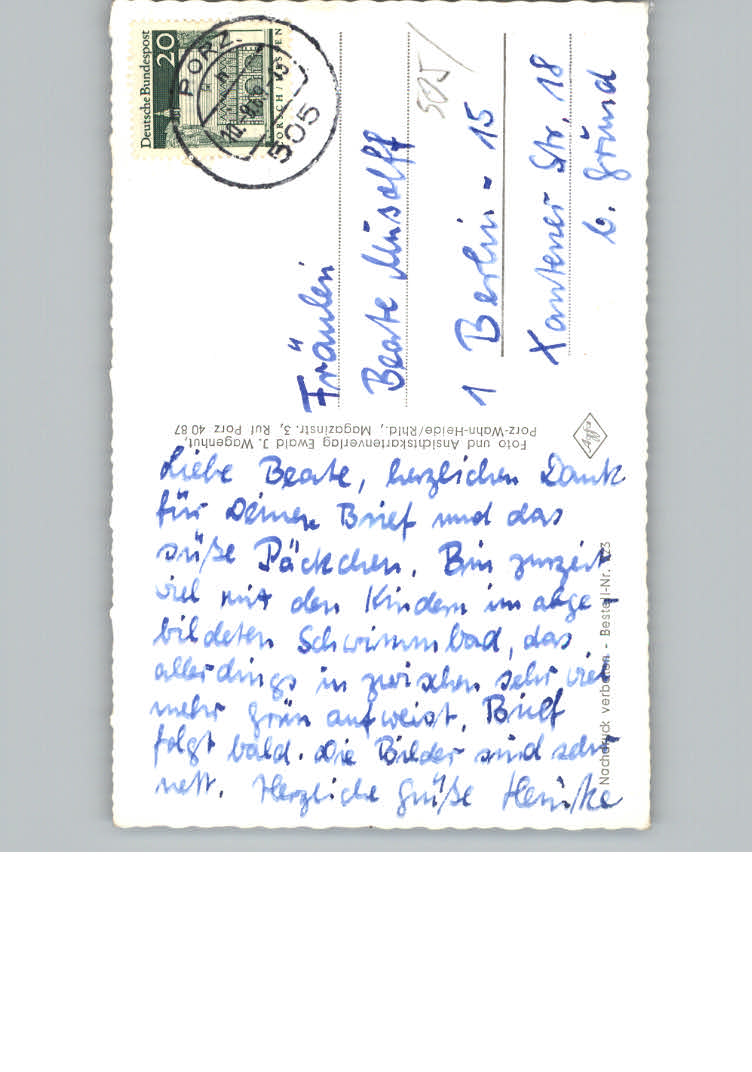 Deutsche Bundespost
20
LORSCH/HESSEN
PORZ
505
505/
Fräulein
Beate Musolff
1 Berlin - 15
Xantener Str. 18
b. Gründ
Foto und Ansichtskartenverlag Ewald J. Wagenhut,
Porz-Wahn-Heide/Rhld., Magazinstr. 3, Ruf Porz 40 87
Agfa
Liebe Beate, herzlichen Dank
für Deinen Brief und das
süße Päckchen. Bin zurzeit
viel mit den Kindern im abge-
bildeten Schwimmbad, das
allerdings inzwischen sehr viel
mehr grün aufweist. Brief
folgt bald. Die Bilder sind sehr
nett. Herzliche Grüße Henrike
Nachdruck verboten - Bestell-Nr.